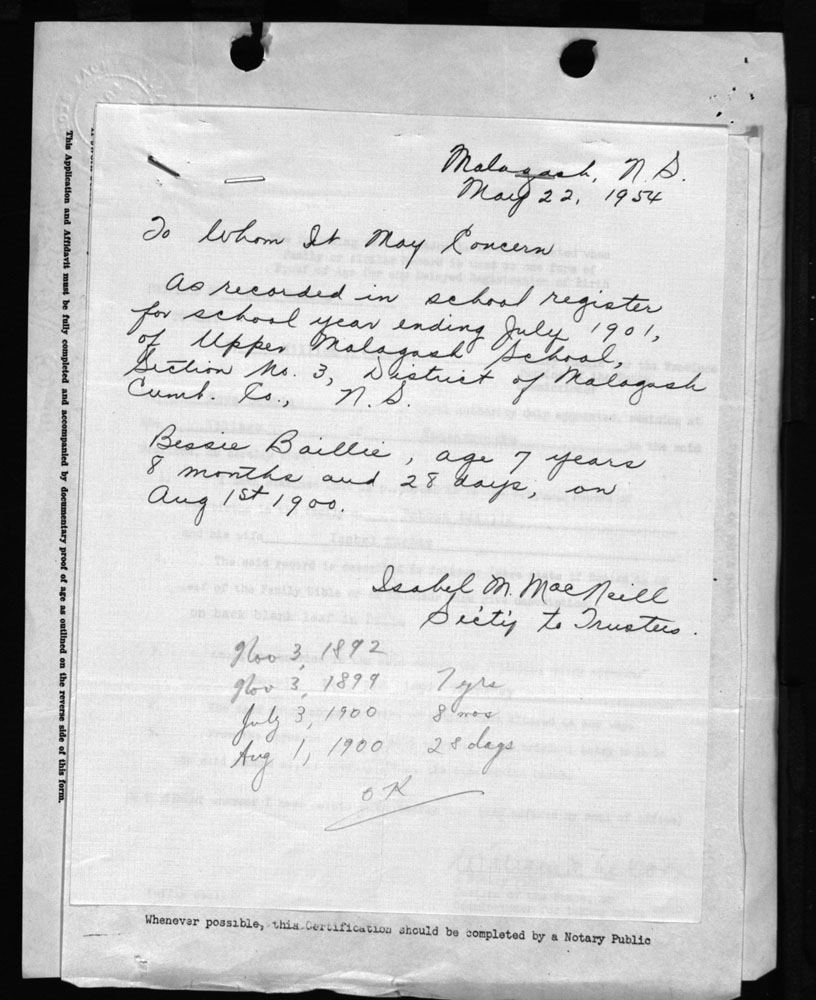 Malagash, N.S.
May 22, 1954
To Whom It May Concern
As recorded in school register
for school year ending July 1901,
of Upper Malagash School,
Section No. 3, District of Malagash
Cumb. Co., N.S.
Bessie Baillie, age 7 years
8 months and 28 days, on
Aug 1st 1900.
Isabel M. MacNeill
Sec'ty to Trustees.
Nov 3, 1892
Nov 3, 1899 7 yrs
July 3, 1900 8 mos
Aug 1, 1900 28 days
OK
Whenever possible, this Certification should be completed by a Notary Public
This Application and Affidavit must be fully completed and accompanied by documentary proof of age as outlined on the reverse side of this form.